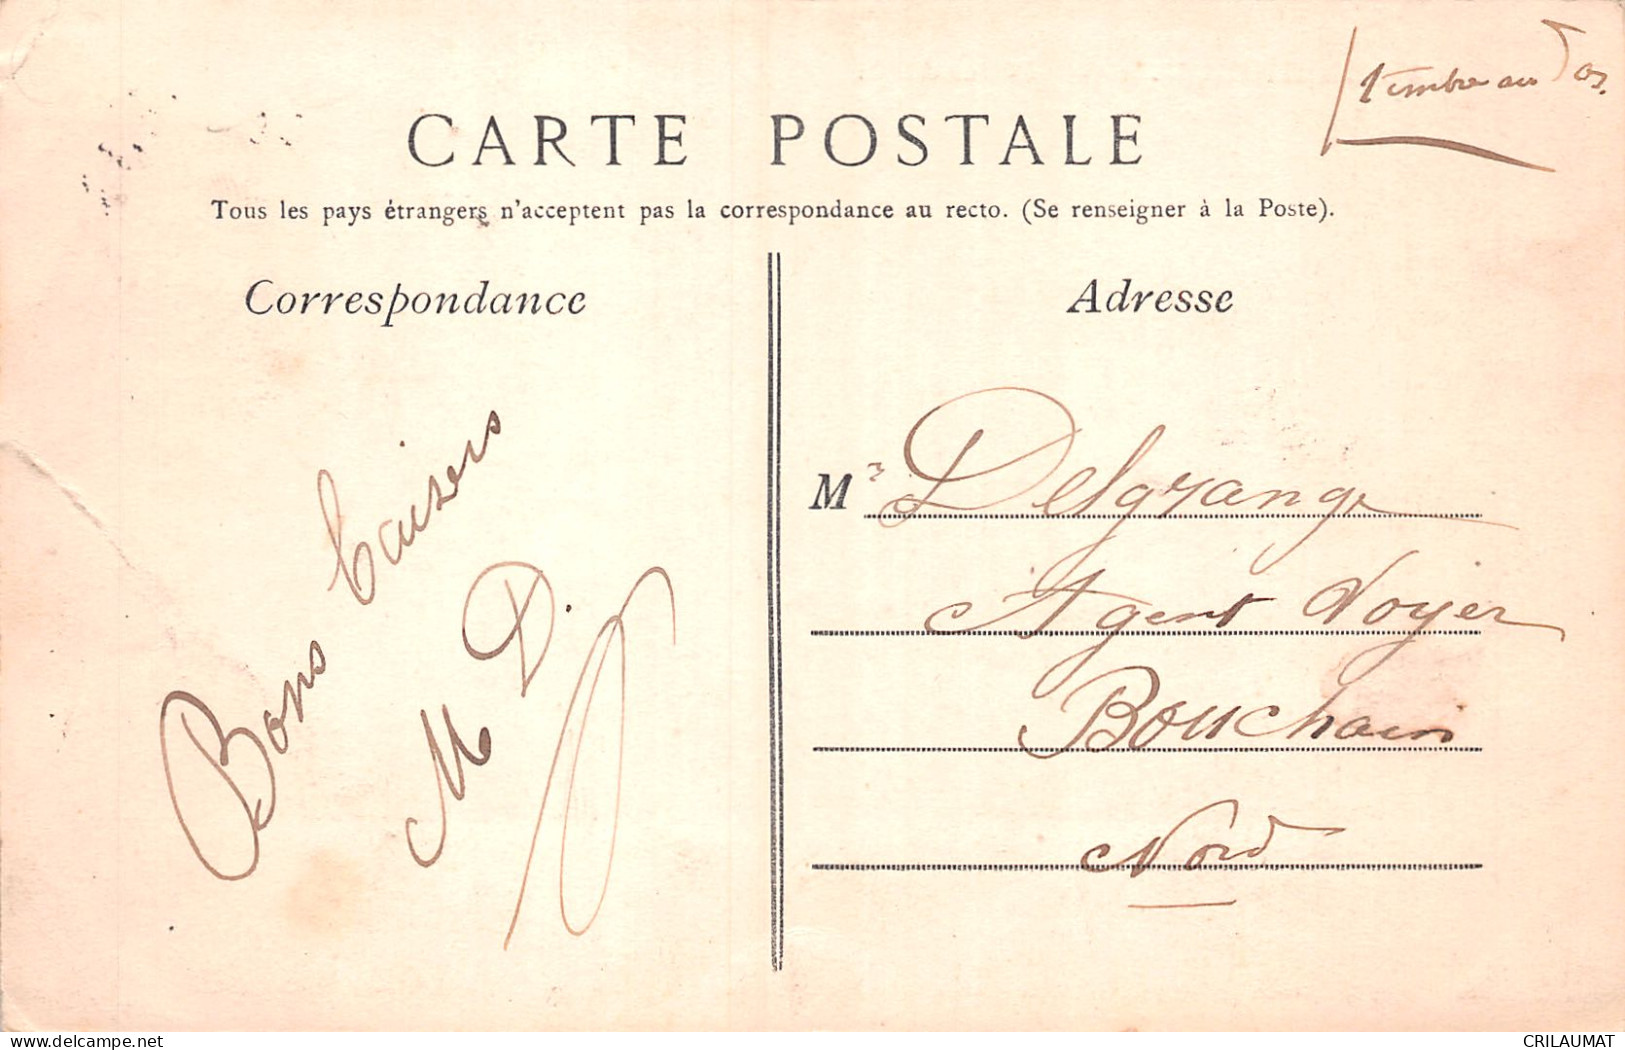 timbre au dos.
CARTE POSTALE
Tous les pays étrangers n'acceptent pas la correspondance au recto. (Se renseigner à la Poste).
Correspondance
Bons baisers
M D.
Adresse
Mr Delgrange
Agent Voyer
Bouchain
Nord
www.delcampe.net
CRILAUMAT